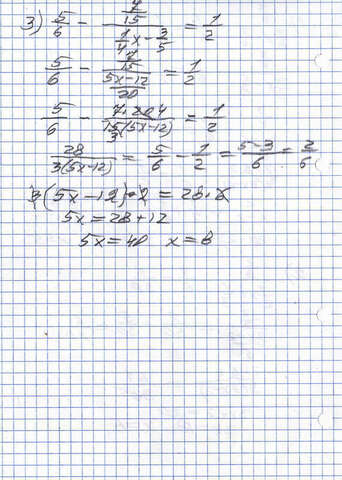 3) 5/6 - (7/15)/(1/4 x - 3/5) = 1/2
5/6 - (7/15)/((5x-12)/20) = 1/2
5/6 - (7·20 4)/(15 3 (5x-12)) = 1/2
28/(3(5x-12)) = 5/6 - 1/2 = (5-3)/6 = 2/6
3(5x-12)·2 = 28·6
5x = 28+12
5x = 40 x = 8